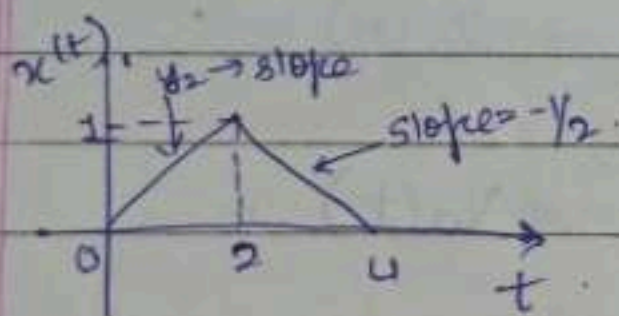 x(t)
1/2 → slope
1
slope = -1/2
0 2 4
t